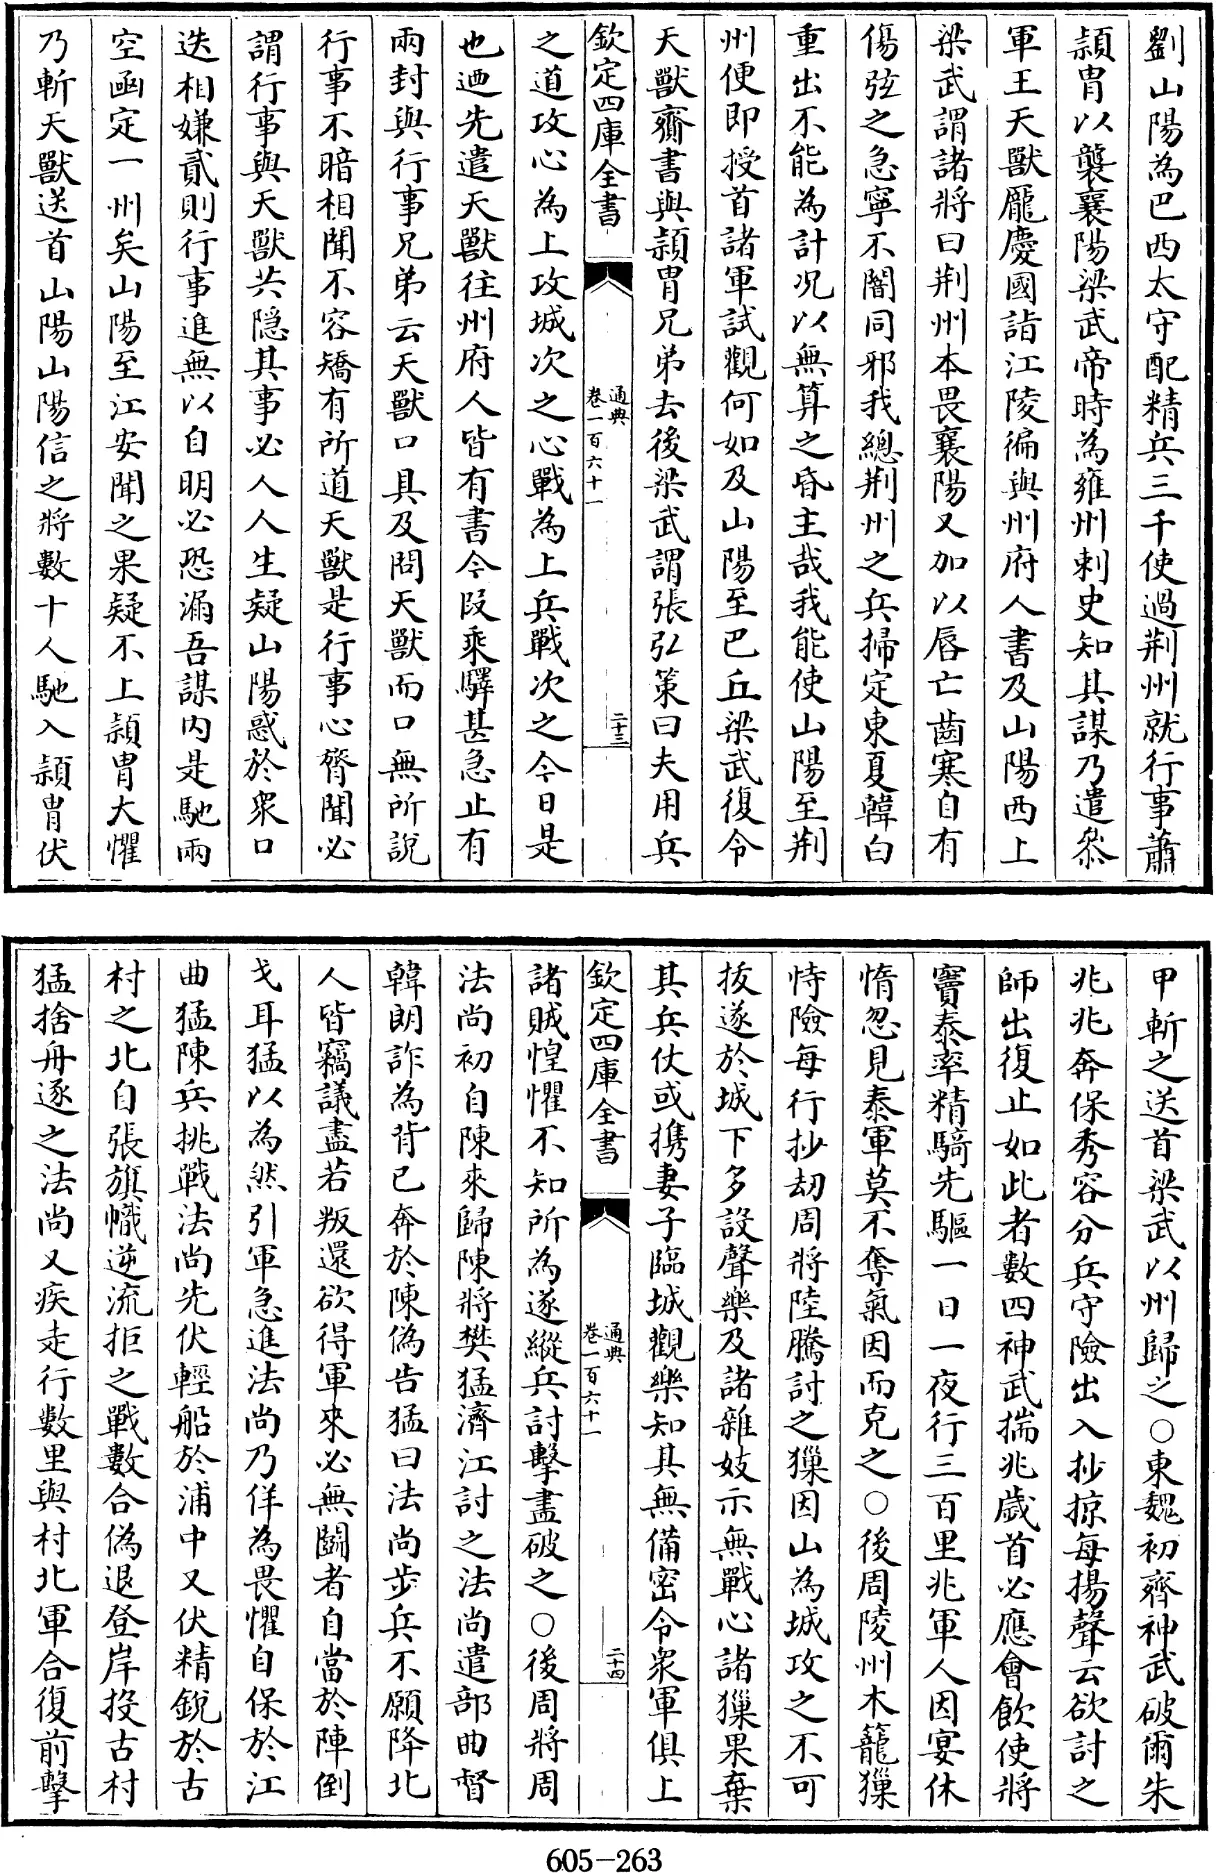 劉山陽為巴西太守配精兵三千使過荆州就行事蕭
頴胄以襲襄陽梁武帝時為雍州刺史知其謀乃遣叅
軍王天獸龎慶國詣江陵徧與州府人書及山陽西上
梁武謂諸將曰荆州本畏襄陽又加以唇亡齒寒自有
傷弦之急寧不闇同邪我總荆州之兵掃定東夏韓白
重出不能為計况以無算之昏主哉我能使山陽至荆
州便即授首諸軍試觀何如及山陽至巴丘梁武復令
天獸齎書與頴胄兄弟去後梁武謂張弘策曰夫用兵
欽定四庫全書
通典
卷一百六十一
二十三
之道攻心為上攻城次之心戰為上兵戰次之今日是
也廼先遣天獸往州府人皆有書今叚乘驛甚急止有
兩封與行事兄弟云天獸口具及問天獸而口無所說
行事不暗相聞不容矯有所道天獸是行事心膂聞必
謂行事與天獸共隠其事必人人生疑山陽惑於衆口
迭相嫌貳則行事進無以自明必恐漏吾謀内是馳兩
空凾定一州矣山陽至江安聞之果疑不上頴胄大懼
乃斬天獸送首山陽山陽信之將數十人馳入頴胄伏
甲斬之送首梁武以州歸之○東魏初齊神武破爾朱
兆兆奔保秀容分兵守險出入抄掠每揚聲云欲討之
師出復止如此者數四神武揣兆歲首必應會飲使將
竇泰率精騎先驅一日一夜行三百里兆軍人因宴休
惰忽見泰軍莫不奪氣因而克之○後周陵州木籠獠
恃險每行抄刼周將陸騰討之獠因山為城攻之不可
拔遂於城下多設聲樂及諸雜妓示無戰心諸獠果棄
其兵仗或攜妻子臨城觀樂知其無備密令衆軍俱上
欽定四庫全書
通典
卷一百六十一
二十四
諸賊惶懼不知所為遂縱兵討擊盡破之○後周將周
法尚初自陳來歸陳將樊猛濟江討之法尚遣部曲督
韓朗詐為背已奔於陳偽告猛曰法尚步兵不願降北
人皆竊議盡若叛還欲得軍來必無鬬者自當於陣倒
戈耳猛以為然引軍急進法尚乃佯為畏懼自保於江
曲猛陳兵挑戰法尚先伏輕船於浦中又伏精銳於古
村之北自張旗幟逆流拒之戰數合偽退登岸投古村
猛捨舟逐之法尚又疾走行數里與村北軍合復前擊
605-263